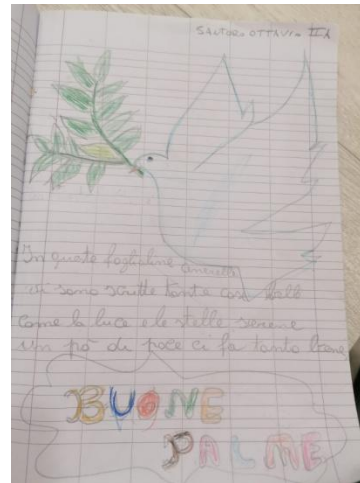 SALTORO OTTAVIO II A
In queste foglioline
vi sono scritte tante cose belle
come la luce e le stelle serene
un po' di pace ci fa tanto bene
BUONE
PALME